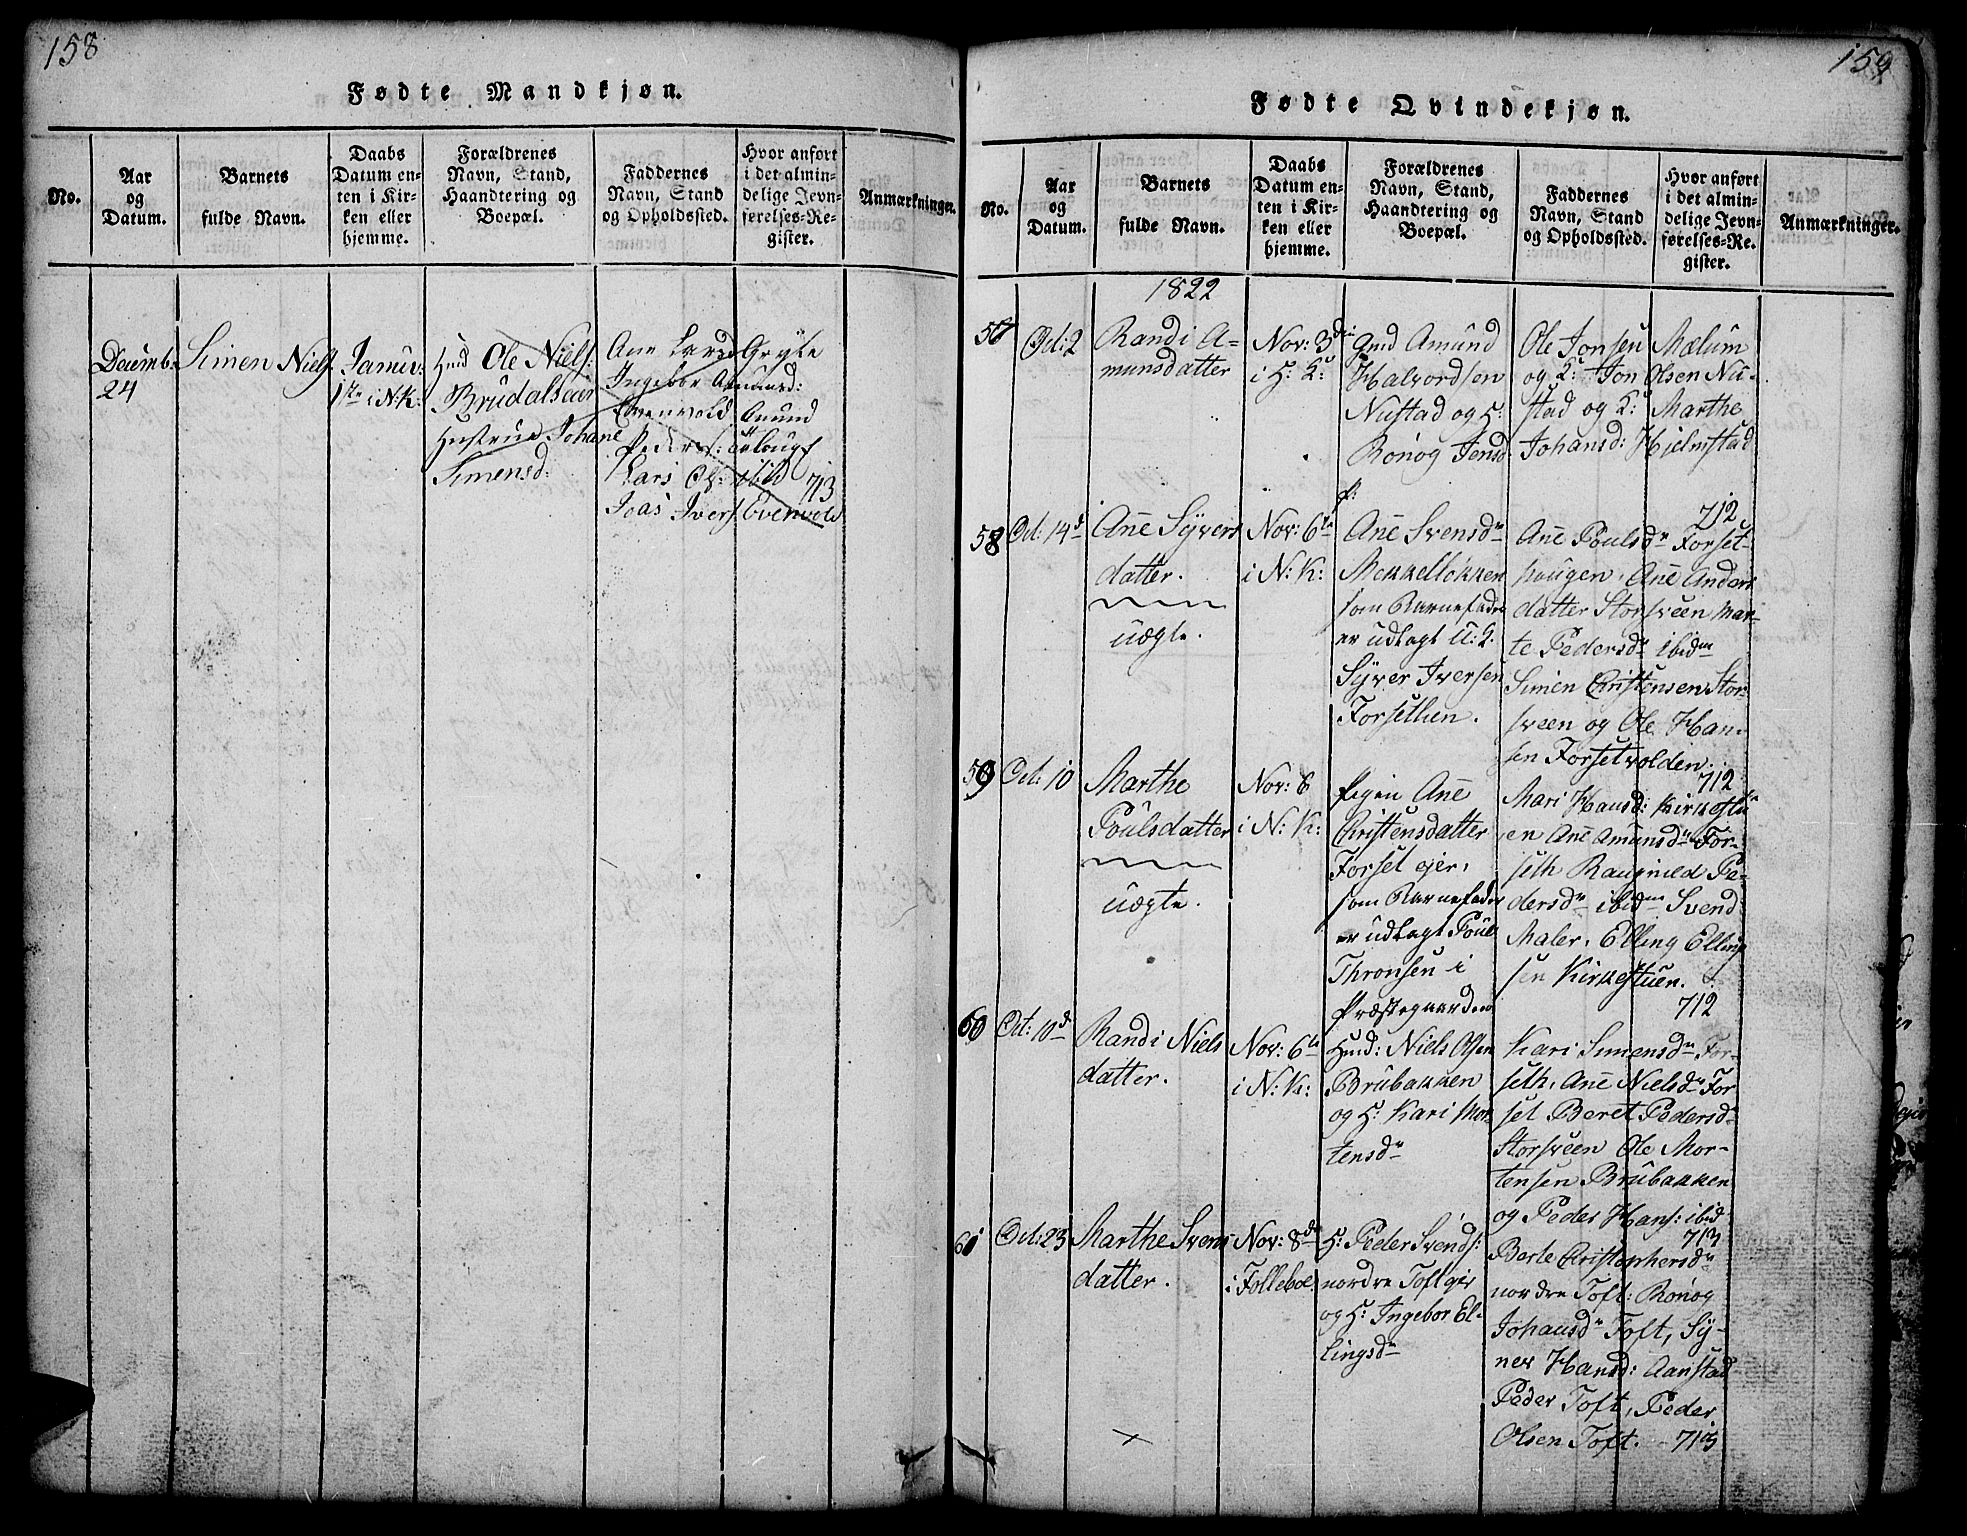 158
Fødte Mandkjøn.
No.
Aar
og
Datum.
Barnets
fulde Navn.
Daabs
Datum en-
ten i Kir-
ken eller
hjemme.
Forældrenes
Navn, Stand,
Haandtering og
Boepæl.
Faddernes
Navn, Stand
og Opholdssted.
Hvor anført
i det almin-
delige Jevn-
førelses-Re-
gister.
Anmærkninger.
Decemb:
24
Simen Niels
Januar:
1ste i N:K:
Hmd Ole Niels:
Brudalseier
Hustrue Johane
Simensd:
Ane Larsd Gryte
Ingebor Amunsd:
Evenvold Amund
Peders:
Lars Ol: ibid 713
Joas Ivers: Evenvold
159
Fødte Qvindekjøn.
No.
Aar
og
Datum.
Barnets
fulde Navn.
Daabs
Datum en-
ten i Kir-
ken eller
hjemme.
Forældrenes
Navn, Stand,
Haandtering og
Boepæl.
Faddernes
Navn, Stand
og Opholdssted.
Hvor anført
i det almin-
delige Jevn-
førelses-Re-
gister.
Anmærkninger.
1822
57
Oct: 2
Randi A-
munsdatter
Nov: 3die
i H: K:
Gmd Amund
Halvordsen
Nustad og H:
Rønog Jensd
Ole Jonsen Mælum
og K: Jon Olsen Nu-
stad og K: Marthe
Johansd: Hjelmstad
712
58
Oct: 14d
Ane Syvers
datter.
uægte.
Nov: 6te
i N: K:
p:
Ane Svensdr
Mekkelløkken
som Barnefader
er udlagt U: K.
Syver Iversen
Forsethen.
Ane Poulsdr Forset-
haugen, Ane Anders
datter Storsveen Mari-
te Pedersdr ibidm
Simen Christensen Stor-
sveen og Ole Han-
sen Forsetvolden.
712
59
Oct: 10
Marthe
Poulsdatter
uægte.
Nov: 6
i N: K:
Pigen Ane
Christensdatter
Forset ejer,
som Barnefader
er udlagt Poul
Thronsen i
Præstegaarden
Mari Hansd: Kirkestu
en Ane Amunsdr For-
seth Rangnild Pe-
dersdr ibidm Svend
Maler, Elling Elling
sen Kirkestuen.
712
60
Oct: 10d
Randi Niels
datter.
Nov: 6te
i N: K:
Hmd: Niels Olsen
Brubakken
og H: Kari Mor-
tensdr
Kari Simensdr For-
seth, Ane Nielsdr For
set Beret Pedersd
Storsveen Ole Mor-
tensen Brubakken
og Peder Hans: ibid
713
61
Oct: 23
Marthe Svens
datter.
Nov: 8d
i Folleboe.
H: Peder Svends:
nordre Toft gir
og H: Ingebor El-
lingsdr
Berte Christophersdr
nordre Toft: Rønog
Johansdr Toft, Sy-
ner Hansd: Aanstad
Peder Toft, Peder
Olsen Toft. - 713